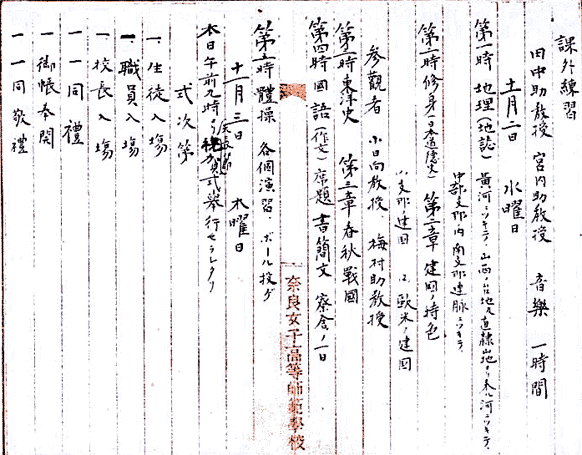 課外練習
田中助教授 宮内助教授 音樂 一時間
十一月二日 水曜日
第一時 地理(地誌) 黄河ニツキテ、山西ノ台地及直隷山地ヨリ来ル河ニツキテ
中部支那内南支那連脈ニツキテ
第二時 修身(日本道徳史) 第二章 建国ノ特色
1、支那ノ建国 2、欧米ノ建国
参觀者 小日向教授、梅村助教授
第三時 東洋史 第三章 春秋戰國
第四時 國語(作文) 席題 書簡文 寮舎ノ一日
第五時 體操 各個演習、ボール投ゲ
十一月三日 木曜日
本日午前九時ヨリ天長節祝賀式舉行セラレタリ
式次第
一、生徒入場
一、職員入場
一、校長入場
一 一同禮
一 御帳奉開
一 一同敬禮
奈良女子高等師範學校